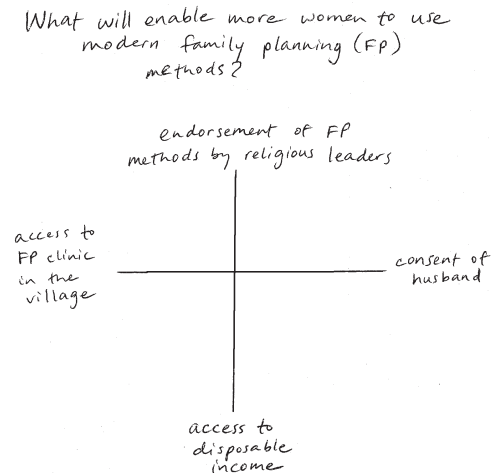 What will enable more women to use
modern family planning (FP)
methods?
endorsement of FP
methods by religious leaders
access to
FP clinic
in the
village
consent of
husband
access to
disposable
income